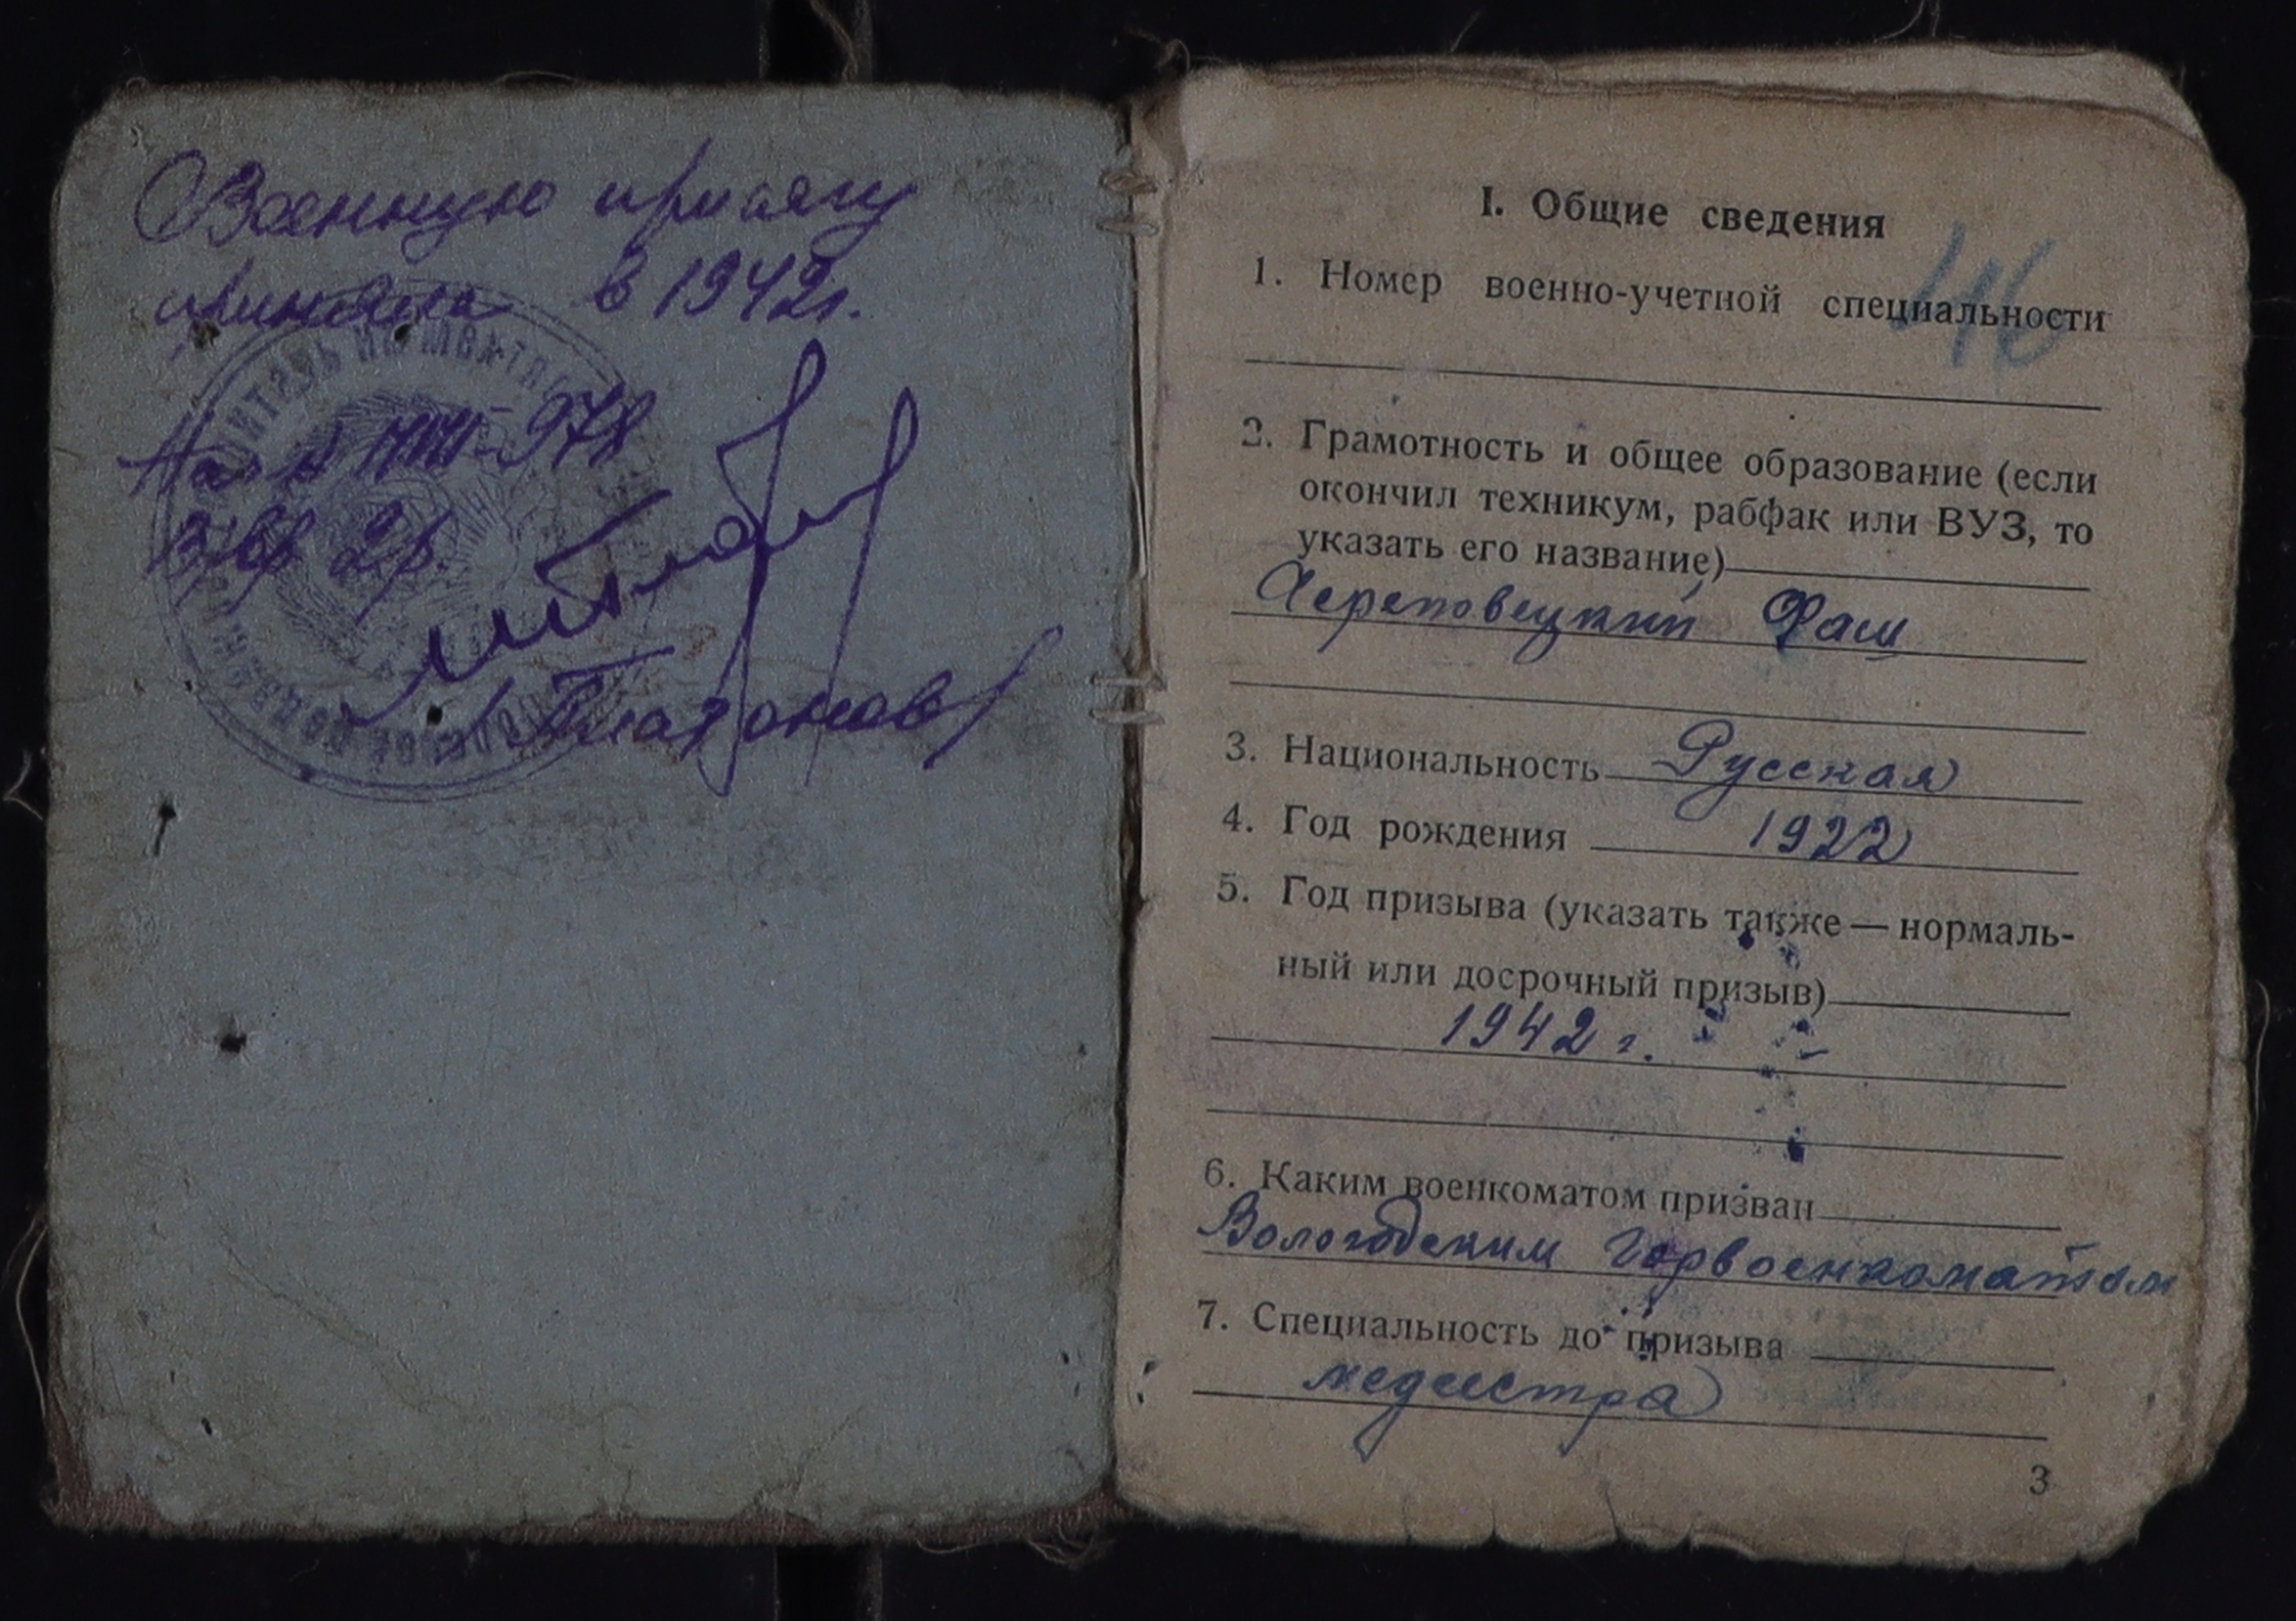 Военную присягу
приняла в 1942г.
Платонов
I. Общие сведения
46
1. Номер военно-учетной специальности
2. Грамотность и общее образование (если
окончил техникум, рабфак или ВУЗ, то
указать его название)
Череповецкий Фаш
3. Национальность Русская
4. Год рождения 1922
5. Год призыва (указать также — нормаль-
ный или досрочный призыв)
1942 г.
6. Каким военкоматом призван
Вологодским Горвоенкоматом
7. Специальность до призыва
медсестра
3